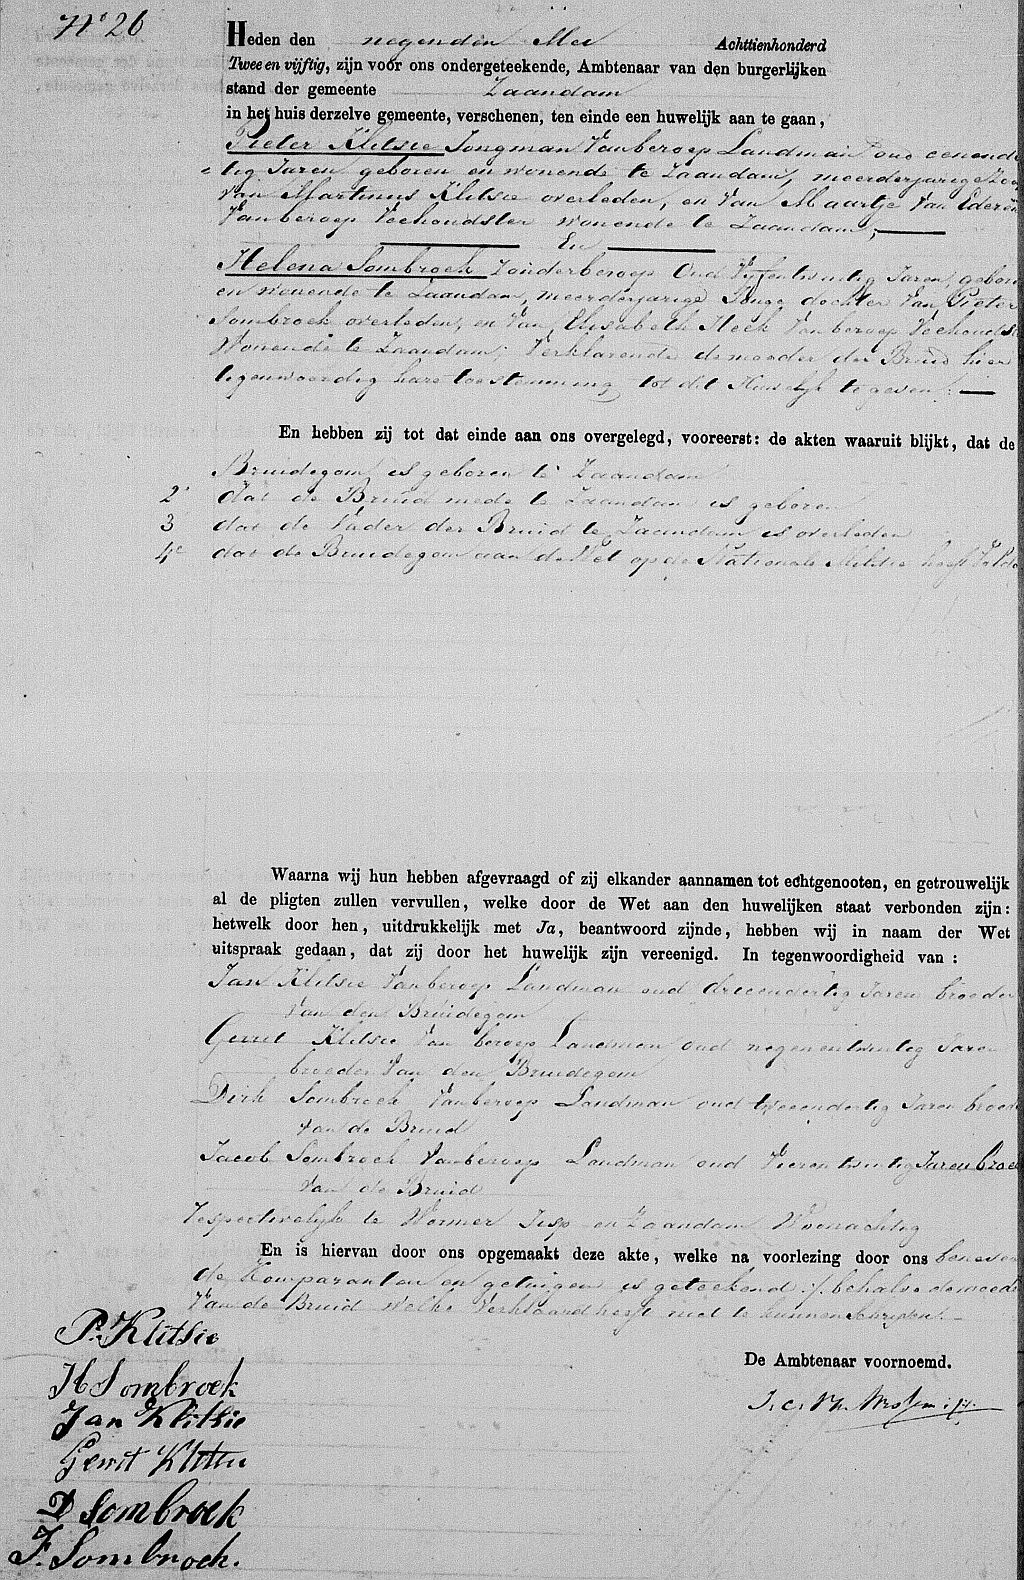 No 26
Heden den negenden Mei Achttienhonderd
Twee en vijftig, zijn voor ons ondergeteekende, Ambtenaar van den burgerlijken
stand der gemeente Zaandam
in het huis derzelve gemeente, verschenen, ten einde een huwelijk aan te gaan,
Pieter Klitsie Jongman Vanberoep Landman oud eenende
tig Jaren geboren en wonende te Zaandam, meerderjarige Zoon
van Martinus Klitsie overleden, en Van Maartje Van Ederen
Vanberoep Veehoudster wonende te Zaandam,
En
Helena Sombroek Zonderberoep Oud Vijfentwintig Jaren, geboren
en wonende te Zaandam, meerderjarige Jonge dochter Van Pieter
Sombroek overleden, en Van Elisabeth Heek Vanberoep Veehoudst
Wonende te Zaandam, Verklarende demoeder der Bruid hier
tegenwoordig hare toestemming tot dit Huwelijk tegeven.
En hebben zij tot dat einde aan ons overgelegd, vooreerst: de akten waaruit blijkt, dat de
Bruidegom is geboren te Zaandam
2e dat de Bruid mede te Zaandam is geboren
3 dat de Vader der Bruid te Zaandam is overleden
4e dat de Bruidegom aan de Wet op de Nationale Militie heeft Volda
Waarna wij hun hebben afgevraagd of zij elkander aannamen tot echtgenooten, en getrouwelijk
al de pligten zullen vervullen, welke door de Wet aan den huwelijken staat verbonden zijn:
hetwelk door hen, uitdrukkelijk met Ja, beantwoord zijnde, hebben wij in naam der Wet
uitspraak gedaan, dat zij door het huwelijk zijn vereenigd. In tegenwoordigheid van :
Jan Klitsie Vanberoep Landman oud drieendertig Jaren broeder
Van den Bruidegom
Gerrit Klitsie Van beroep Landman oud negenentwintig Jaren
broeder Van den Bruidegom
Dirk Sombroek Vanberoep Landman oud tweeendertig Jaren broed
Van de Bruid
Jacob Sombroek Vanberoep Landman oud Vierentwintig Jaren broed
Van de Bruid
respectivelijk te Wormer Jisp en Zaandam Woonachtig
En is hiervan door ons opgemaakt deze akte, welke na voorlezing door ons beneven
de Komparanten en getuigen is geteekend :/: behalve demoeder
Van de Bruid welke Verklaard heeft niet te kunnen schrijven.
P. Klitsie
H Sombroek
Jan Klitsie
Gerrit Klitsie
D Sombroek
J. Sombroek.
De Ambtenaar voornoemd.